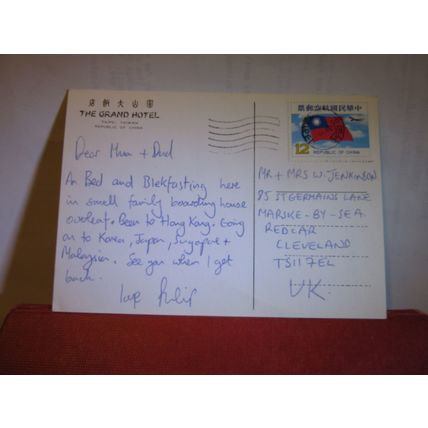 店飯大山圓
THE GRAND HOTEL
TAIPEI, TAIWAN
REPUBLIC OF CHINA
Dear Mum + Dad
Am Bed and Blekfasting here
in small family boarding house
overleaf. Been to Hong Kong. Going
on to Korea, Japan, Singapore +
Malaysia. See you when I get
back.
love Philip
票郵念紀航國民華中
12
REPUBLIC OF CHINA
MR + MRS W. JENKINSON
85 ST GERMAINS LANE
MARSKE-BY-SEA
REDCAR
CLEVELAND
TS11 7EL
UK.